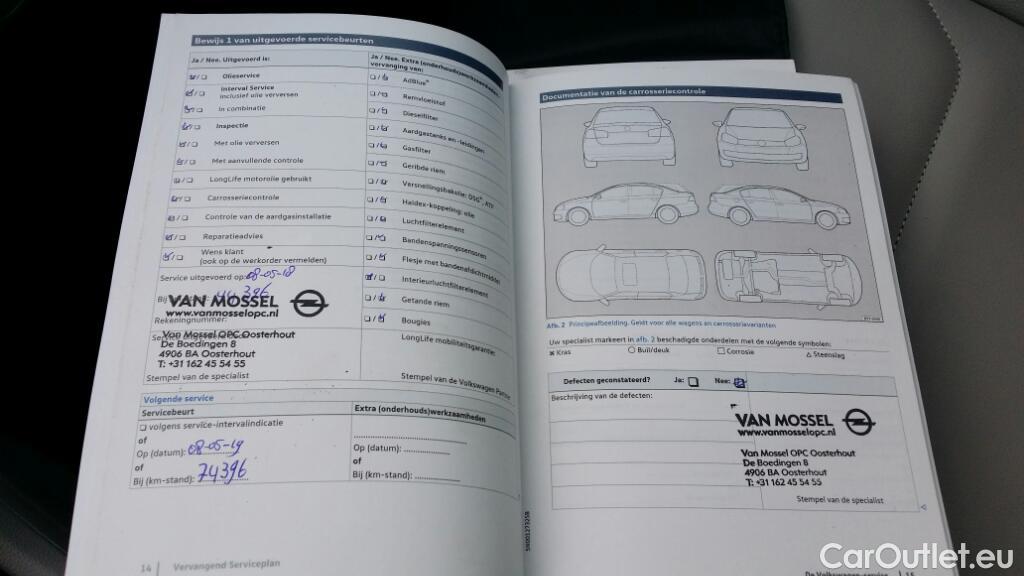 Bewijs 1 van uitgevoerde servicebeurten
Ja / Nee. Uitgevoerd is:
Olieservice
Interval Service
inclusief olie verversen
In combinatie
Inspectie
Met olie verversen
Met aanvullende controle
LongLife motorolie gebruikt
Carrosseriecontrole
Controle van de aardgasinstallatie
Reparatieadvies
Wens klant
(ook op de werkorder vermelden)
Service uitgevoerd op: 08-05-18
44396
VAN MOSSEL
www.vanmosselopc.nl
Rekeningnummer:
Van Mossel OPC Oosterhout
De Boedingen 8
4906 BA Oosterhout
T: +31 162 45 54 55
Stempel van de specialist
Ja / Nee. Extra (onderhouds)werkzaamheden
vervanging van:
AdBlue®
Remvloeistof
Dieselfilter
Aardgastanks en -leidingen
Gasfilter
Geribde riem
Versnellingsbakolie: DSG®, ATF
Haldex-koppeling: olie
Luchtfilterelement
Bandenspanningssensoren
Flesje met bandenafdichtmiddel
Interieurluchtfilterelement
Getande riem
Bougies
LongLife mobiliteitsgarantie:
Stempel van de Volkswagen Partner
Volgende service
Servicebeurt
volgens service-intervalindicatie
of
Op (datum): 08-05-19
of
Bij (km-stand): 74396
Extra (onderhouds)werkzaamheden
Op (datum):
of
Bij (km-stand):
14 | Vervangend Serviceplan
5N0012732SB
Documentatie van de carrosseriecontrole
Afb. 2 Principeafbeelding. Geldt voor alle wagens en carrosserievarianten
Uw specialist markeert in afb. 2 beschadigde onderdelen met de volgende symbolen:
Kras Buil/deuk Corrosie Steenslag
Defecten geconstateerd? Ja: Nee:
Beschrijving van de defecten:
VAN MOSSEL
www.vanmosselopc.nl
Van Mossel OPC Oosterhout
De Boedingen 8
4906 BA Oosterhout
T: +31 162 45 54 55
Stempel van de specialist
De Volkswagen-service | 15
CarOutlet.eu